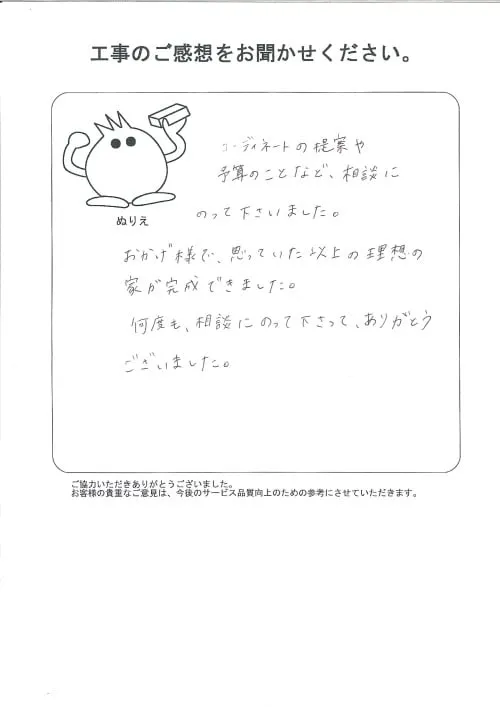 工事のご感想をお聞かせください。
コーディネートの提案や
予算のことなど、相談に
のって下さいました。
ぬりえ
おかげ様で、思っていた以上の理想の
家が完成できました。
何度も、相談にのって下さって、ありがとう
ございました。
ご協力いただきありがとうございました。
お客様の貴重なご意見は、今後のサービス品質向上のための参考にさせていただきます。